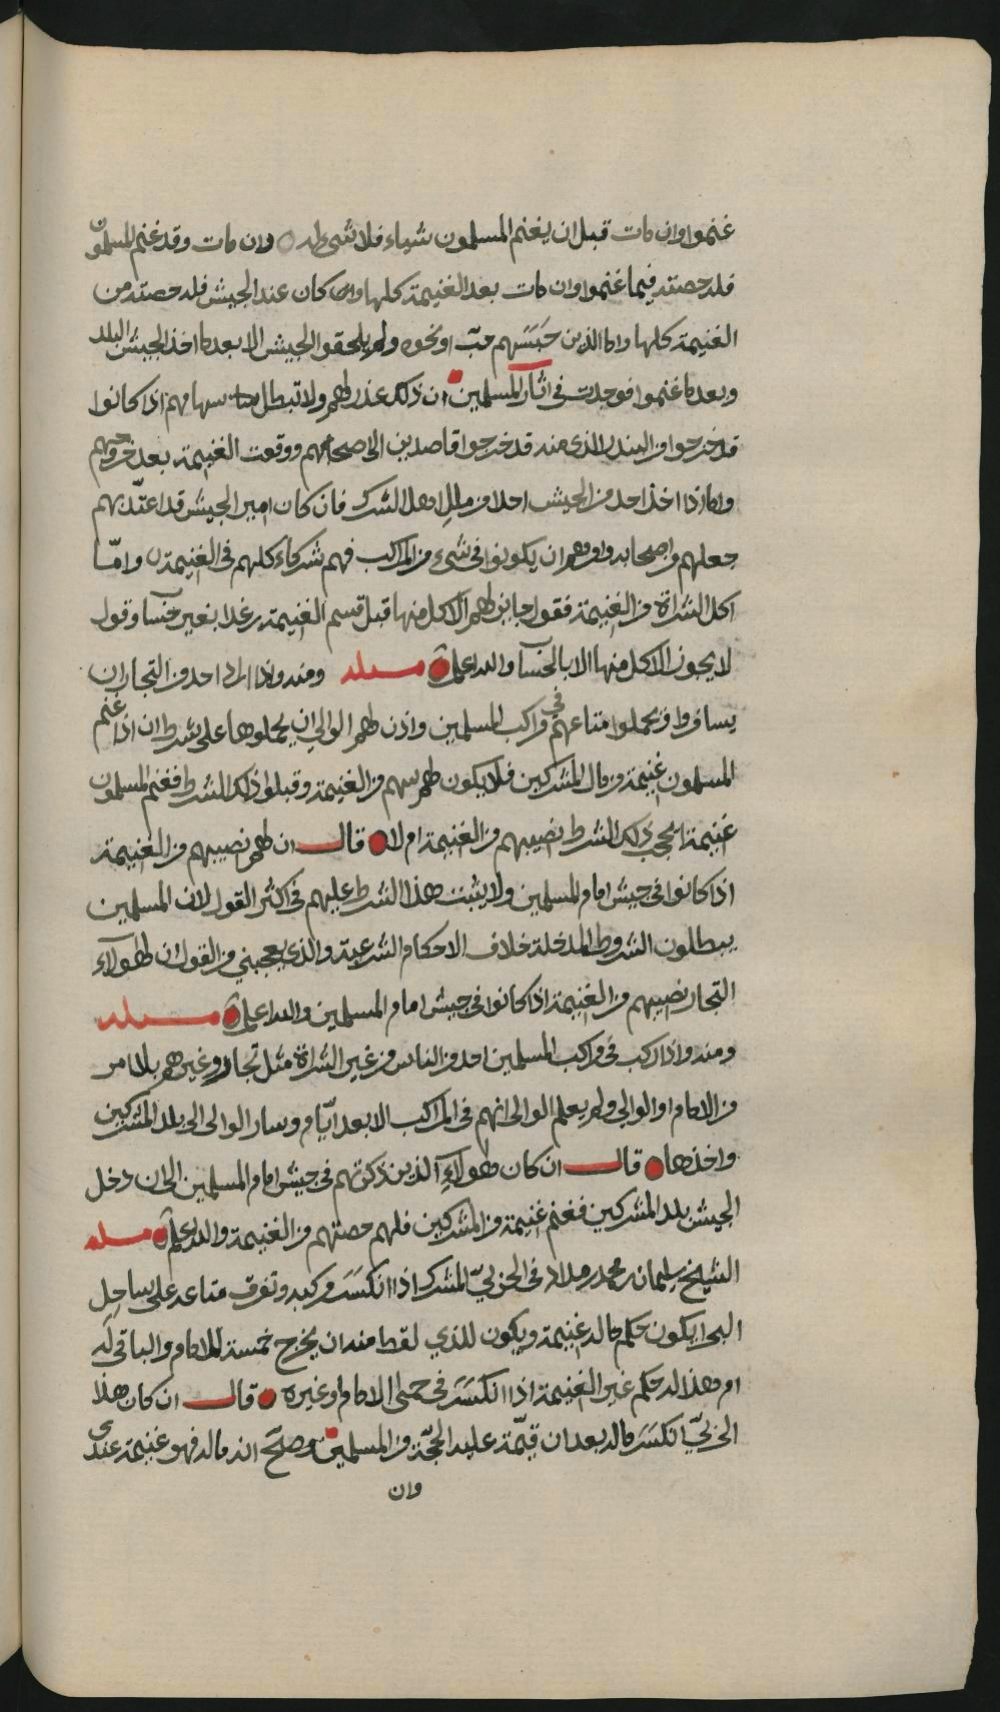 غنموا وان مات قبل ان يغنم المسلمون شياء فلا شى له وان مات وقد غنم المسلمون
فله حصته فيما غنموا وان مات بعد الغنيمة كلها وان كان عند الجيش فله حصته من
الغنيمة كلها واما الذين حبسهم خب او نحوه ولم يلحقوا الجيش الا بعد ما اخذ الجيش البلد
وبعد ما غنموا فوجدت فى اثار المسلمين ان ذلك عذر لهم ولا تبطل سهامهم اذا كانوا
قد خرجوا من البندر الذى منه قد خرجوا قاصدين الى اصحابهم ووقعت الغنيمة بعد خروجهم
واما اذا اخذ احد من الجيش احدا من ملل اهل الشرك فان كان امير الجيش قد اعتد بهم
جعلهم من اصحابه وامرهم ان يكونوا فى شىء من المراكب فهم شركاء كلهم فى الغنيمة وامّا
اكل الشراة من الغنيمة فقول جايز لهم الاكل منها قبل قسم الغنيمة رغدا بغير حساب وقول
لا يجوز الاكل منها الا بالحساب والله اعلم مسئلة ومنه واذا اراد احد من التجار ان
يسافروا ويحملوا متاعهم فى مراكب المسلمين واذن لهم الوالى ان يحملوها على شرط ان اذا غنم
المسلمون غنيمة من مال المشركين فلا يكون لهم سهم من الغنيمة وقبلوا ذلك الشرط فغنم المسلمون
غنيمة ايجب ذلك الشرط نصيبهم من الغنيمة ام لا قال ان لهم نصيبهم من الغنيمة
اذا كانوا فى جيش امام المسلمين ولا يثبت هذا الشرط عليهم فى اكثر القول لان المسلمين
يبطلون الشروط المدخلة خلاف الاحكام الشرعية والذى يعجبني من القول ان لهولاء
التجار نصيبهم من الغنيمة اذا كانوا فى جيش امام المسلمين والله اعلم مسئلة
ومنه واذا ركب فى مراكب المسلمين احد من الناس من غير الشراة مثل تجار وغيرهم بلا امر
من الامام او الوالى ولم يعلم الوالى انهم فى المراكب الا بعد ايّام وسار الوالى الى بلد المشركين
واخذها قال ان كان هولاء الذين ذكرتهم فى جيش امام المسلمين الى ان دخل
الجيش بلد المشركين فغنم غنيمة من المشركين فلهم حصتهم من الغنيمة والله اعلم مسئلة
الشيخ سليمان بن محمد بن مداد فى الحربيّ المشرك اذا انكسر مركبه وتفرق متاعه على ساحل
البحر ايكون حكم ماله غنيمة ويكون للذي لقط منه ان يخرج خمسة للامام والباقى له
ام هذا له حكم غير الغنيمة اذا انكسر فى حمى الامام او غيره قال ان كان هذا
الحربيّ انكسر ماله بعد ان قيمة عليه الحجّة من المسلمين وصحّ انه ماله فهو غنيمة عندى
وان